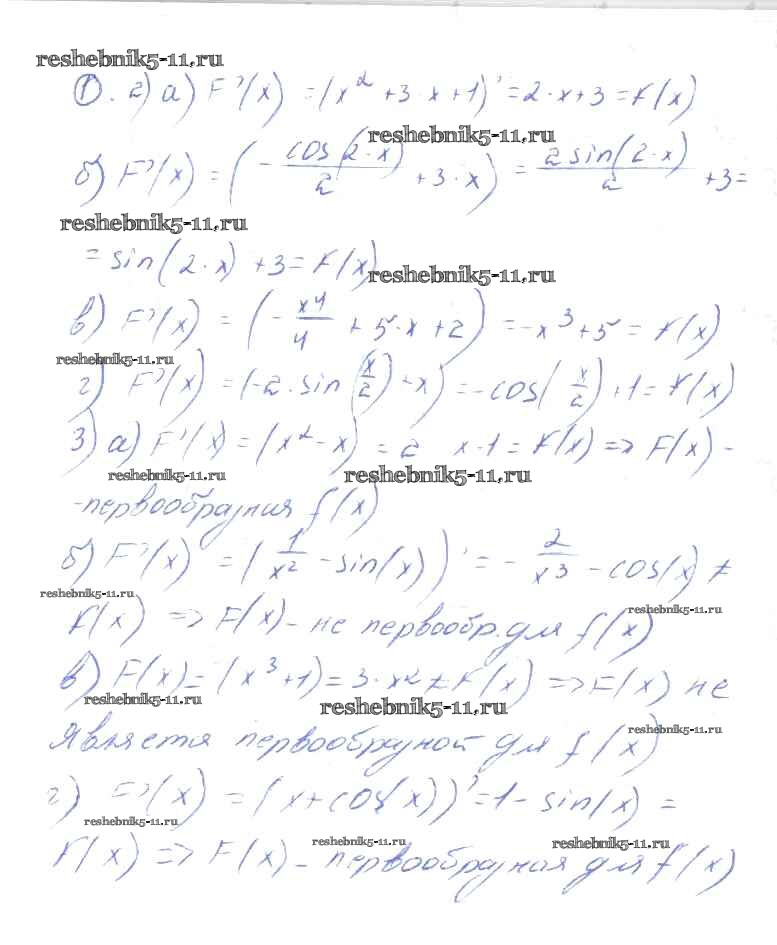 reshebnik5-11.ru
①. 2) а) F'(x) = (x² + 3·x + 1)' = 2·x + 3 = f(x)
reshebnik5-11.ru
б) F'(x) = (- cos(2·x)/2 + 3·x) = 2 sin(2·x)/2 + 3 =
reshebnik5-11.ru
= sin(2·x) + 3 = f(x)
reshebnik5-11.ru
в) F'(x) = (- x⁴/4 + 5·x + 2) = -x³ + 5 = f(x)
reshebnik5-11.ru
г) F'(x) = (-2·sin(x/2) - x) = -cos(x/2) + 1 = f(x)
3) а) F'(x) = (x² - x) = 2 x-1 = f(x) => F(x) -
reshebnik5-11.ru reshebnik5-11.ru
-первообразная f(x)
б) F'(x) = (1/x² - sin(x))' = - 2/x³ - cos(x) ≠
reshebnik5-11.ru reshebnik5-11.ru
f(x) => F(x) - не первообр. для f(x)
в) F(x) = (x³ + 1) = 3·x² ≠ f(x) => F(x) не
reshebnik5-11.ru reshebnik5-11.ru
является первообразной для f(x)
reshebnik5-11.ru
г) F'(x) = (x + cos(x))' = 1 - sin(x) =
reshebnik5-11.ru reshebnik5-11.ru reshebnik5-11.ru
f(x) => F(x) - первообразная для f(x)